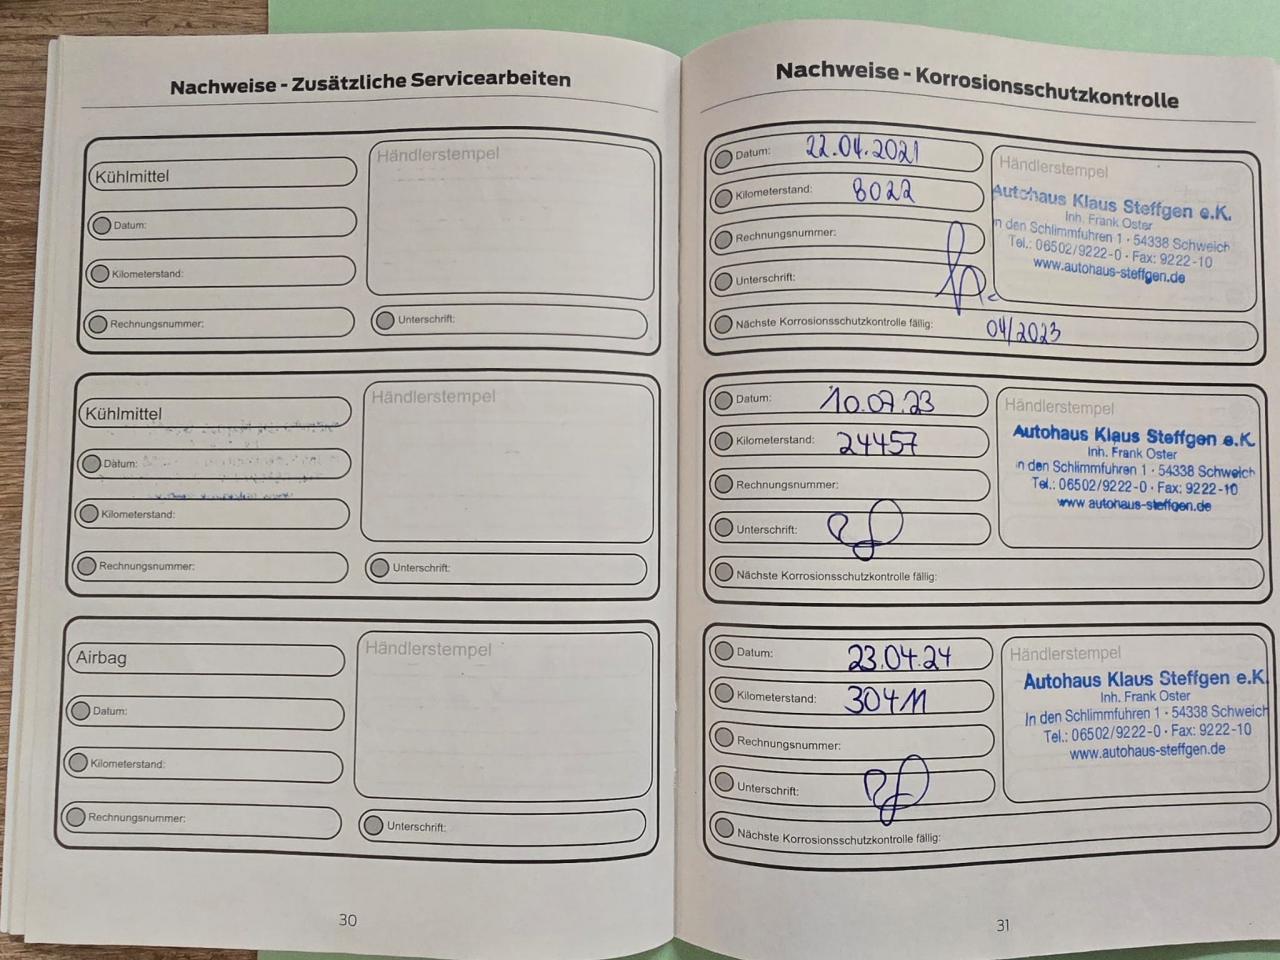 Nachweise - Zusätzliche Servicearbeiten
Kühlmittel
Datum:
Kilometerstand:
Rechnungsnummer:
Händlerstempel
Unterschrift:
Kühlmittel
Datum:
Kilometerstand:
Rechnungsnummer:
Händlerstempel
Unterschrift:
Airbag
Datum:
Kilometerstand:
Rechnungsnummer:
Händlerstempel
Unterschrift:
30
Nachweise - Korrosionsschutzkontrolle
Datum: 22.04.2021
Kilometerstand: 8022
Rechnungsnummer:
Unterschrift:
Nächste Korrosionsschutzkontrolle fällig: 04/2023
Händlerstempel
Autohaus Klaus Steffgen e.K.
Inh. Frank Oster
n den Schlimmfuhren 1 · 54338 Schweich
Tel.: 06502/9222-0 · Fax: 9222-10
www.autohaus-steffgen.de
Datum: 10.07.23
Kilometerstand: 24457
Rechnungsnummer:
Unterschrift:
Nächste Korrosionsschutzkontrolle fällig:
Händlerstempel
Autohaus Klaus Steffgen e.K.
Inh. Frank Oster
In den Schlimmfuhren 1 · 54338 Schweich
Tel.: 06502/9222-0 · Fax: 9222-10
www.autohaus-steffgen.de
Datum: 23.04.24
Kilometerstand: 30411
Rechnungsnummer:
Unterschrift:
Nächste Korrosionsschutzkontrolle fällig:
Händlerstempel
Autohaus Klaus Steffgen e.K.
Inh. Frank Oster
In den Schlimmfuhren 1 · 54338 Schweich
Tel.: 06502/9222-0 · Fax: 9222-10
www.autohaus-steffgen.de
31